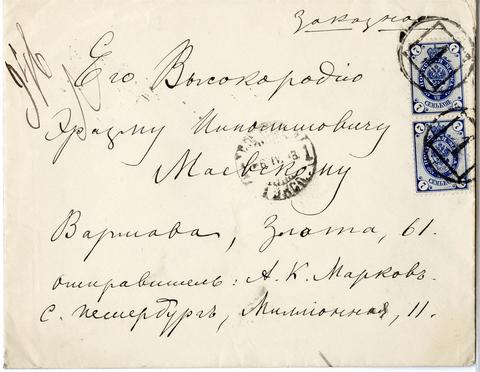 Заказное
Его Высокородію
Эразму Никотиновичу
Маевскому
Варшава, Злота, 61.
отправитель: А. К. Марковъ.
С. Петербургъ, Милліонная, 11.
7 7
СЕМЬ КОП.
7 7
СЕМЬ КОП.